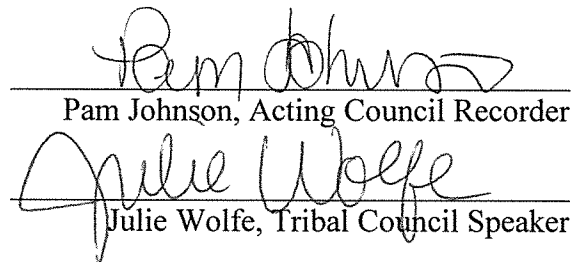 Pam Johnson
Pam Johnson, Acting Council Recorder
Julie Wolfe
Julie Wolfe, Tribal Council Speaker